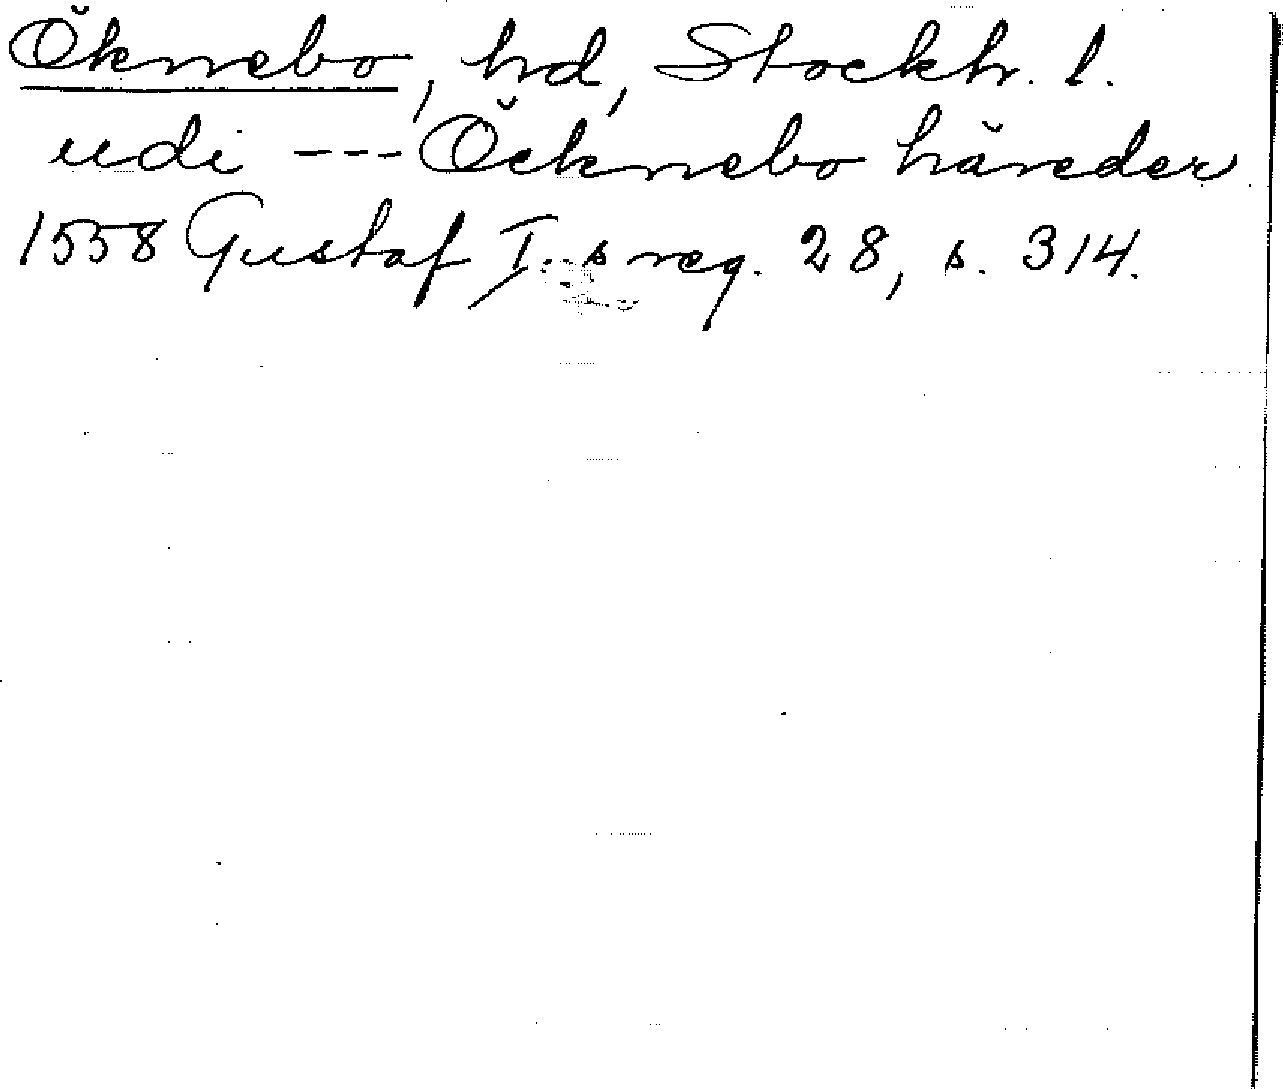 Öknebo, hd, Stockh. l.
udi --- Öcknebo häreder
1558 Gustaf I.s reg. 28, s. 314.